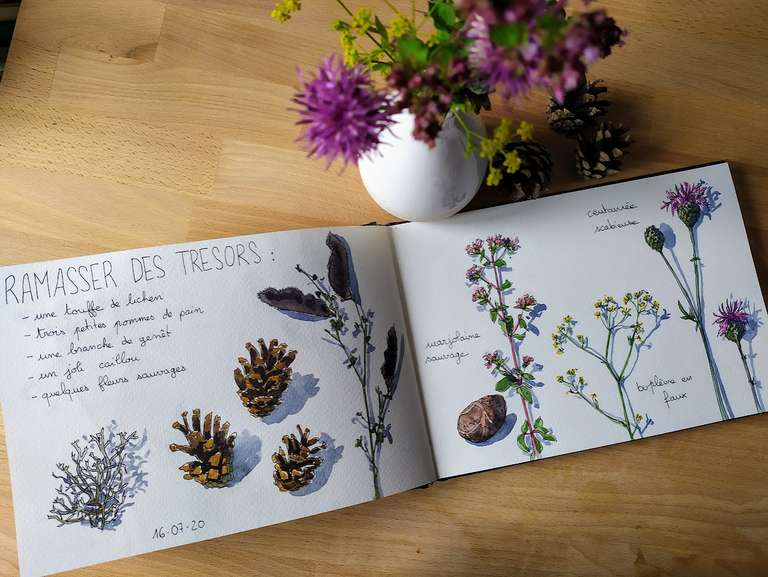 RAMASSER DES TRESORS :
- une touffe de lichen
- trois petites pommes de pain
- une branche de genêt
- un joli caillou
- quelques fleurs sauvages
16-07-20
marjolaine
sauvage
centaurée
scabieuse
buplèvre en
faux